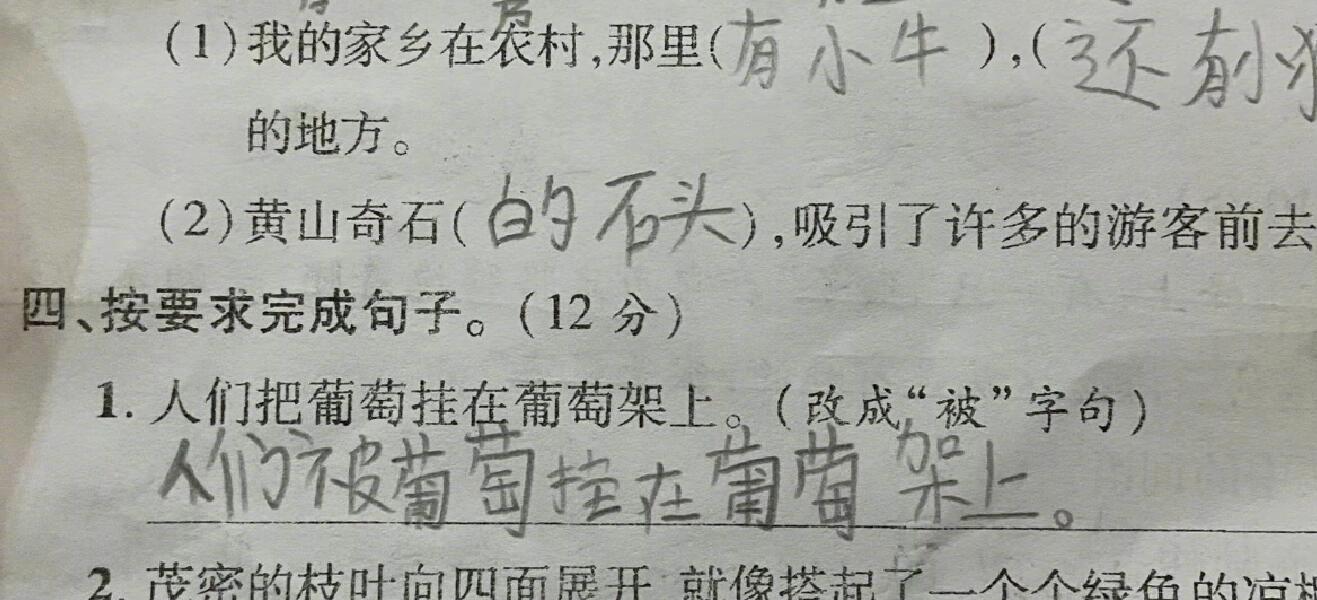 (1)我的家乡在农村,那里(有小牛),(还有小
的地方。
(2)黄山奇石(的石头),吸引了许多的游客前去
四、按要求完成句子。(12分)
1. 人们把葡萄挂在葡萄架上。(改成“被”字句)
人们被葡萄挂在葡萄架上。
2. 茂密的枝叶向四面展开,就像搭起了一个个绿色的凉棚